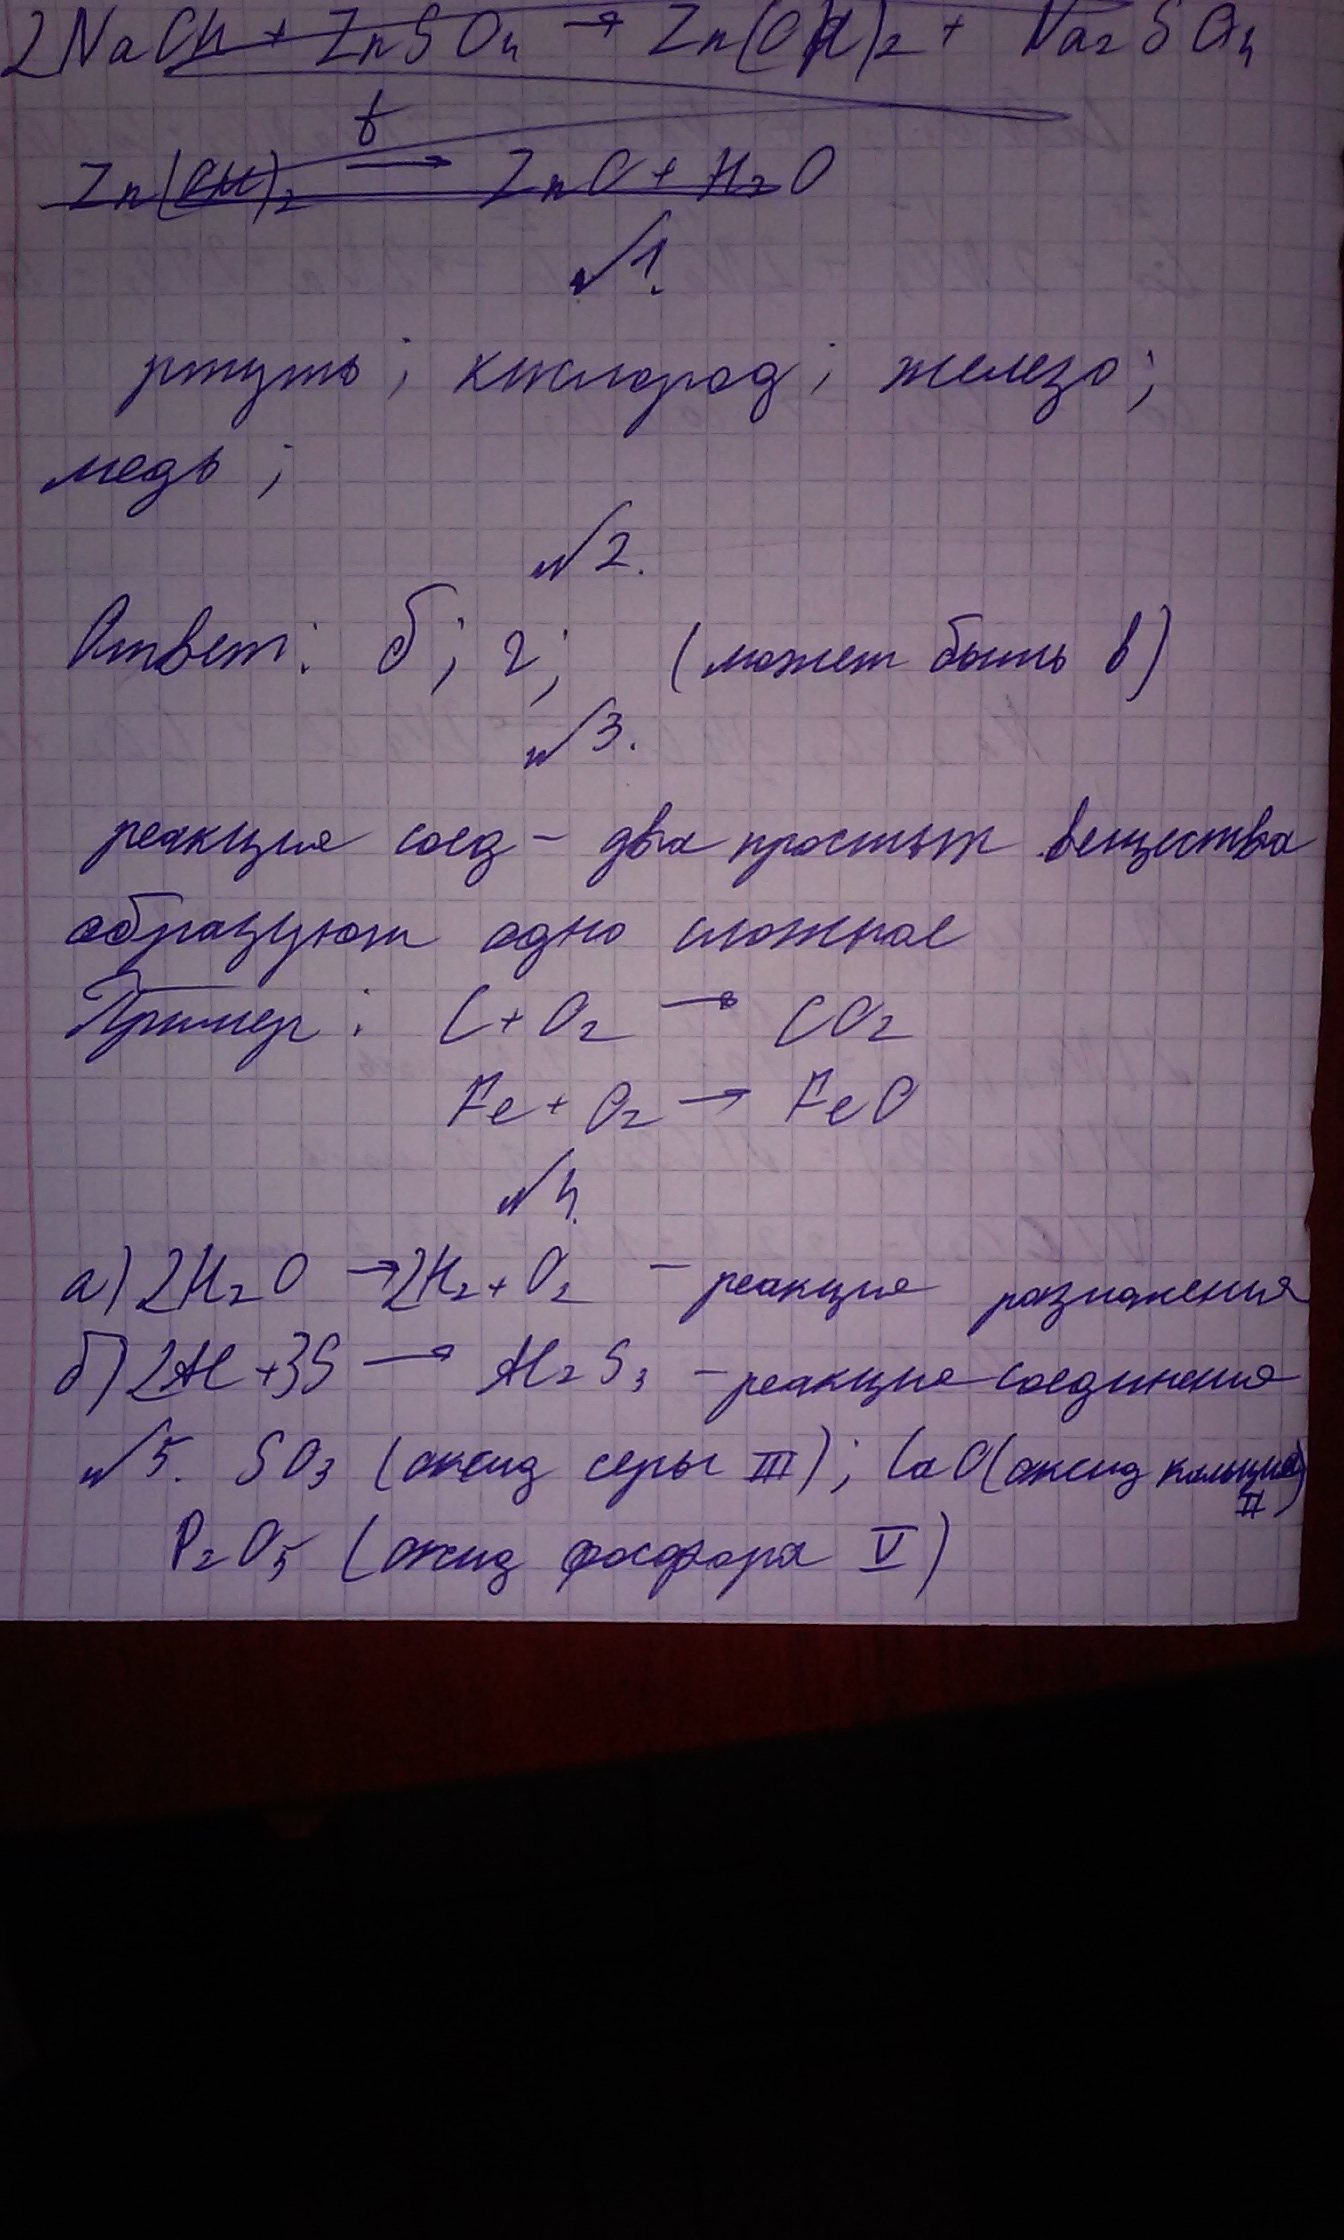 2NaOH + ZnSO4 → Zn(OH)2 + Na2SO4
Zn(OH)2 t→ ZnO + H2O
№1.
ртуть; кислород; железо;
медь;
№2.
Ответ: б; г; (может быть в)
№3.
реакция соед - два простых вещества
образуют одно сложное
Пример: C + O2 → CO2
Fe + O2 → FeO
№4.
а) 2H2O → 2H2 + O2 - реакция разложения
б) 2Al + 3S → Al2S3 - реакция соединения
№5. SO3 (оксид серы III); CaO (оксид кальция II)
P2O5 (оксид фосфора V)